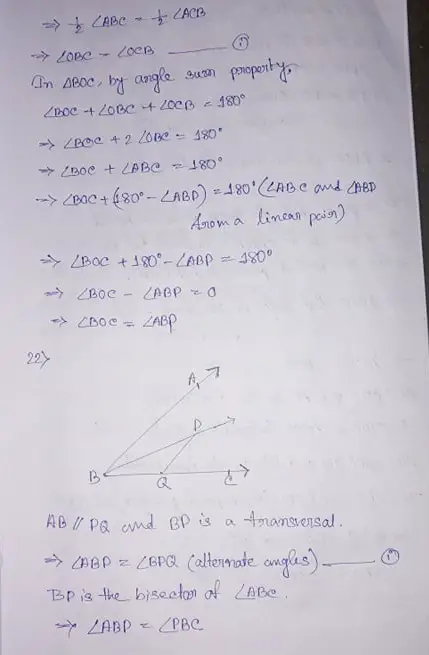 ⇒ 1/2 ∠ABC = 1/2 ∠ACB
⇒ ∠OBC = ∠OCB ——— ①
In ΔBOC, by angle sum property,
∠BOC + ∠OBC + ∠OCB = 180°
⇒ ∠BOC + 2 ∠OBC = 180°
⇒ ∠BOC + ∠ABC = 180°
⇒ ∠BOC + (180° - ∠ABP) = 180° (∠ABC and ∠ABD
from a linear pair)
⇒ ∠BOC + 180° - ∠ABP = 180°
⇒ ∠BOC - ∠ABP = 0
⇒ ∠BOC = ∠ABP
22)
A
P
B
Q
C
AB // PQ and BP is a transversal.
⇒ ∠ABP = ∠BPQ (alternate angles) ——— ①
BP is the bisector of ∠ABC.
⇒ ∠ABP = ∠PBC